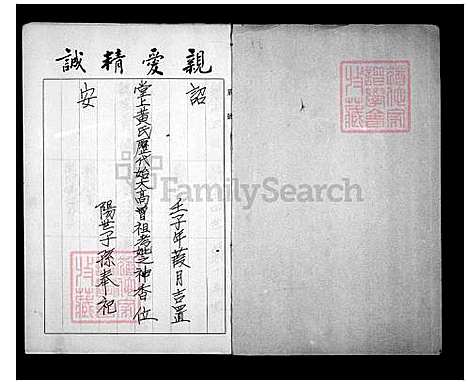 親愛精誠
詔
壬子年葭月吉置
堂上黃氏歷代始太高曾祖考妣之神香位
陽世子孫奉祀
安
FamilySearch